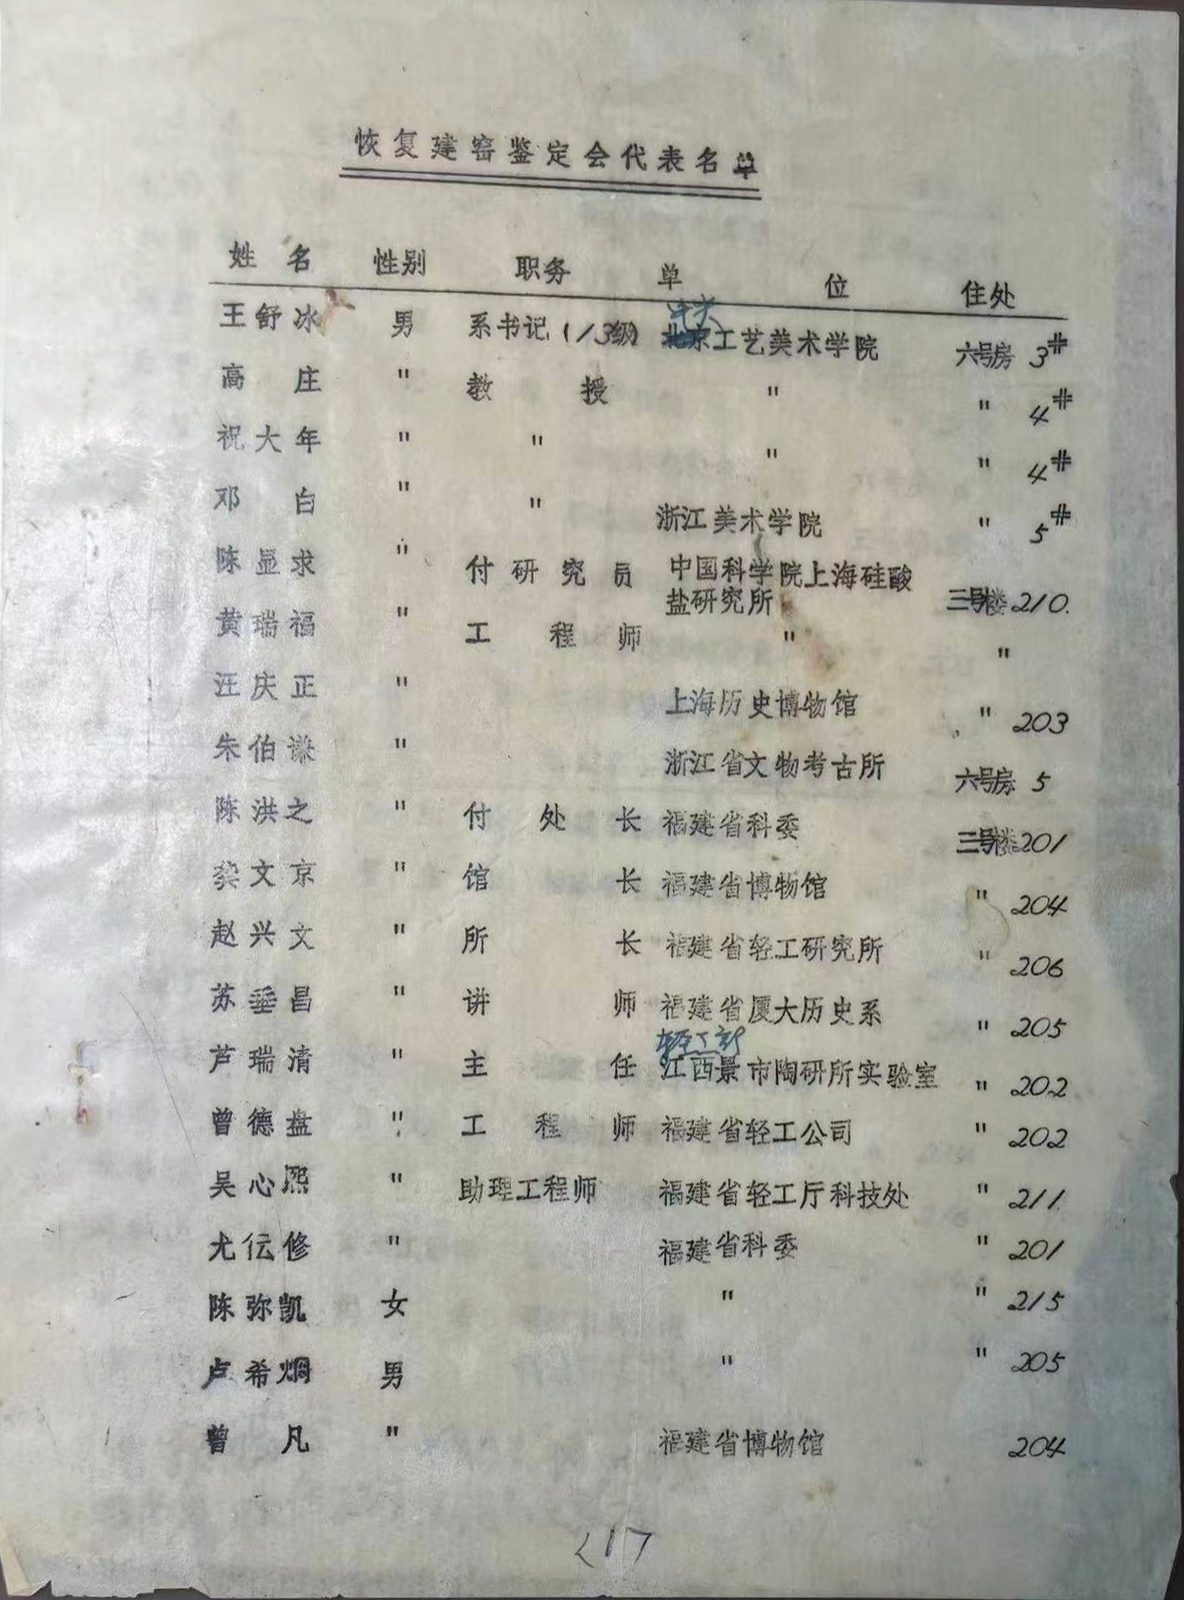 恢复建窑鉴定会代表名单
姓名 性别 职务 单位 住处
王舒冰 男 系书记(13级) 中央 北京工艺美术学院 六号房 3#
高庄 " 教授 " " 4#
祝大年 " " " " 4#
邓白 " " 浙江美术学院 " 5#
陈显求 " 付研究员 中国科学院上海硅酸
盐研究所 三号楼 210.
黄瑞福 " 工程师 " "
汪庆正 " 上海历史博物馆 " 203
朱伯谦 " 浙江省文物考古所 六号房 5
陈洪之 " 付处长 福建省科委 三号楼 201
龚文京 " 馆长 福建省博物馆 " 204
赵兴文 " 所长 福建省轻工研究所 " 206
苏垂昌 " 讲师 福建省厦大历史系 " 205
轻工部
芦瑞清 " 主任 江西景市陶研所实验室 " 202
曾德盘 " 工程师 福建省轻工公司 " 202
吴心熙 " 助理工程师 福建省轻工厅科技处 " 211
尤伝修 " 福建省科委 " 201
陈弥凯 女 " " 215
卢希炯 男 " " 205
曾凡 " 福建省博物馆 204
<17